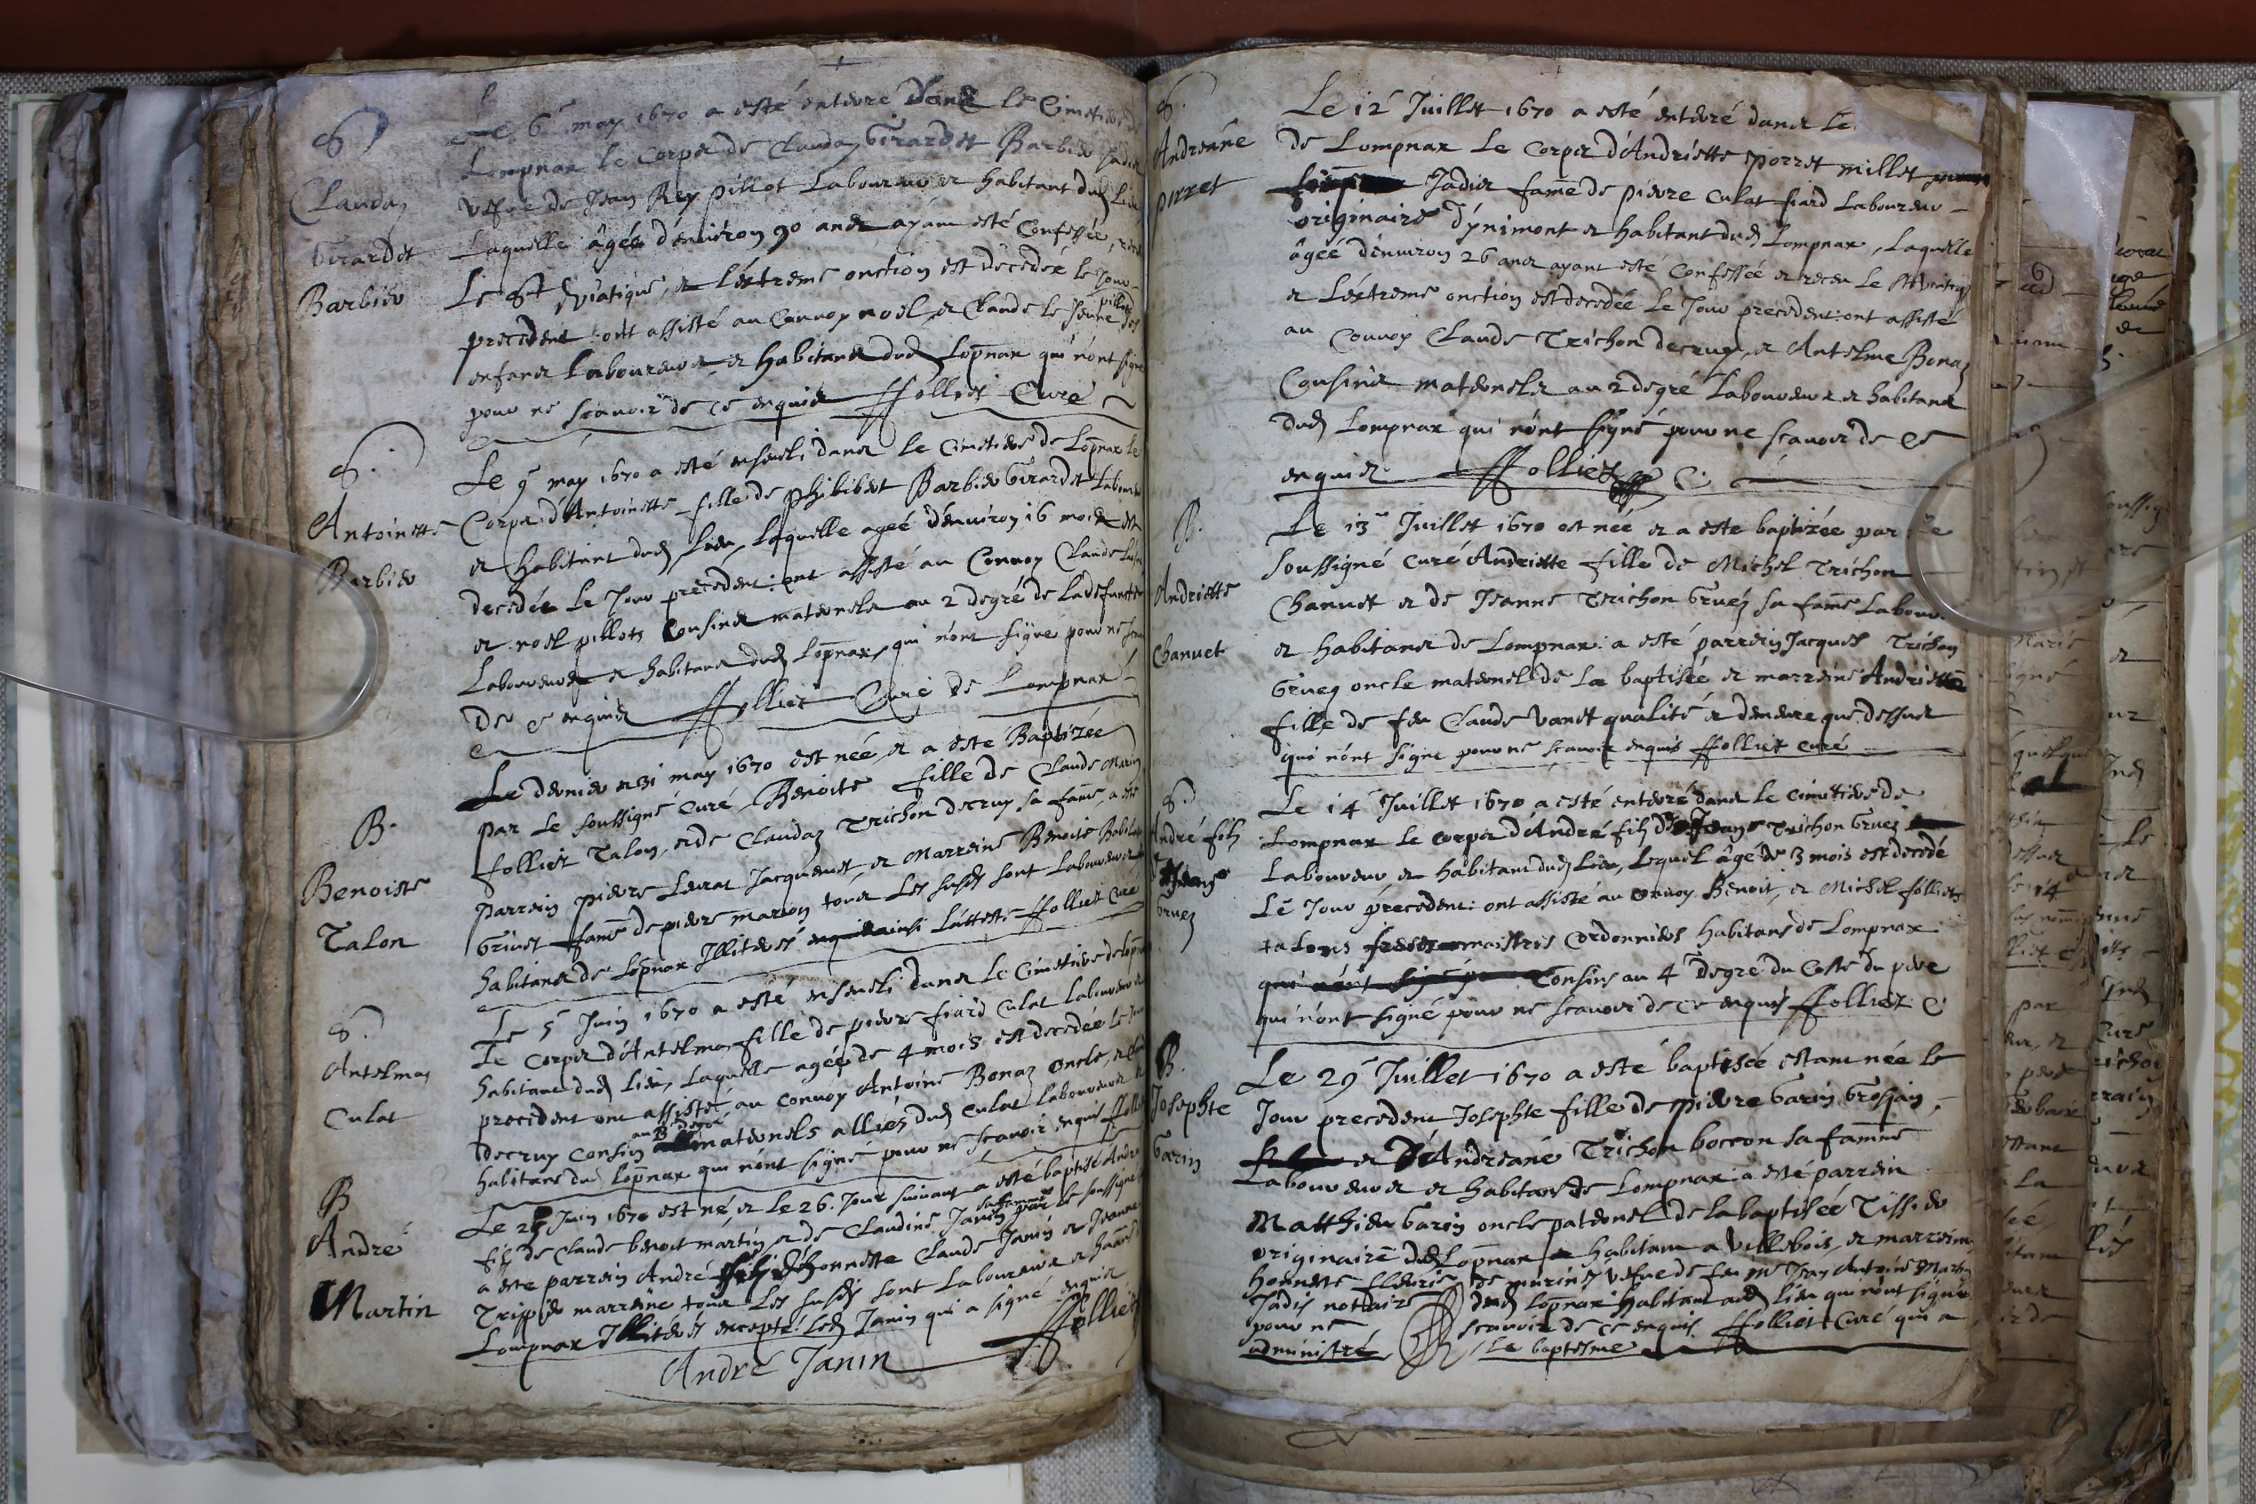 S.
Clauda
Girardet
Barbier
Le 6 may 1670 a esté enterré dans le Cimetiere de
Lompnax le corps de Clauda Girardet Barbier jadis
vefve de Jean Rey pillot Laboureur et habitant dud Lieu
Laquelle âgée d'environ 90 ans ayant esté Confessée, receu
Le St viatique, et L'extreme onction est décedée le Jour
precedent: ont assisté au Convoy noel, et Claude le Jeune pillotz
enfans Laboureurs et habitans dud Lopnax qui n'ont signé
pour ne sçavoir de ce enquis ffolliet Curé
S.
Antoinette
Barbier
Le 9 may 1670 a esté enseveli dans le Cimetiere de Lopnax le
Corps d'Antoinette fille de Philibert Barbier Girardet Laboureur
et habitant dud Lieu, Laquelle ageé d'environ 16 mois est
decedée Le Jour precedent: ont assisté au Convoy Claude
et noel pillotz Cousins maternels au 2 degré de La defuncte
Laboureurs et habitans dud Lopnax, qui n'ont signé pour ne
de ce enquis ffolliet Curé de Lompnax
B.
Benoiste
Talon
Le dernier et 31 may 1670 est née, et a este Baptizée
par Le soussigné Curé, Benoite fille de Claude Marin
ffolliet Talon, et de Clauda Trichon decruy sa fame, a esté
parrein pierre Leurat Jacquemet, et Marreine Benoite
Grinet fame de pierre marion tous Les susds sont Laboureurs
habitans de Lopnax Illiterés enquis ainsi L'atteste ffolliet Curé
S.
Antelma
Culat
Le 5 Juin 1670 a esté enseveli dans le Cimetiere de Lopnax
Le corps d'Antelma fille de pierre fiard Culat laboureur
habitant dud lieu, Laquelle agée de 4 mois est decedée le Jour
precedent ont assisté, au convoy Antoine Bonaz oncle, et
decruy Cousin au 3 degré maternels alliez dud Culat laboureurs
habitans dud Lopnax qui n'ont signé pour ne sçavoir enquis
B
André
Martin
Le 25 Juin 1670 est né, et Le 26 Jour suivant a esté baptisé André
fils de Claude benoit martin et de Claudine Janin sa fame par Le soussigné
a este parrein André fils d'honneste Claude Janin et Jeanne
Trippier marreine tous Les susds sont Laboureurs et
Lompnax Illiterés excepté Led Janin qui a signé enquis
André Janin ffolliet
S.
Andreáne
porret
Le 12 Juillet 1670 a esté enterré dans Le
de Lompnax Le Corps d'Andriette porret millet
Jadis fame de pierre Culat fiard Laboureur
originaire d'ynimont et habitant dud Lompnax, Laquelle
âgée d'environ 26 ans ayant esté Confessée et receu Le St viatiq
et L'extreme onction est decedée Le Jour precedent: ont assisté
au Convoy Claude Trichon decruy, et Antelme Bonaz
Cousins maternels au 2 degré Laboureurs et habitans
dud Lompnax qui n'ont signé pour ne scavoir de ce
enquis ffolliet C
B.
Andriette
Chanuet
Le 13 Juillet 1670 est née et a este baptizée par le
soussigné Curé Andriette fille de Michel Trichon
Chanuet et de Jeanne Trichon Gruez sa fame Labour.
et habitans de Lompnax: a esté parrein Jacques Trichon
Gruez oncle maternel de La baptisée et marreine Andriette
fille de feu Claude Vanet qualité et demeure que dessus
qui n'ont signé pour ne sçavoir enquis ffolliet curé
S.
André fils
Gruez
Le 14 Juillet 1670 a esté enterré dans le cimetiere de
Lompnax Le corps d'André fils de Trichon Gruez
Laboureur et habitant dud Lieu, Lequel âgé de 3 mois est decedé
Le Jour précedent: ont assisté au convoy Benoit, et Michel folliets
talons maistres Cordonniers habitans de Lompnax
Consins au 4 degré du Costé du pere
qui n'ont signé pour ne scavoir de ce enquis ffolliet C
B.
Josephte
Garin
Le 29 Juillet 1670 a esté baptisée estant née le
Jour precedent Josephte fille de pierre Garin Grosjan,
et D'Andreáne Trichon boccon sa famme
Laboureurs et habitans de Lompnax: a esté parrein
Matthieu Garin oncle paternel de la baptisée Tissier
originaire dud Lopnax habitant a Villebois, et marreine
honneste fleurie de murinet vefve de feu Me Jean Antoine Martin
Jadis notaire dud Lopnax habitant aud lieu qui n'ont signé
pour ne scavoir de ce enquis. ffolliet Curé qui a
administré le baptesme